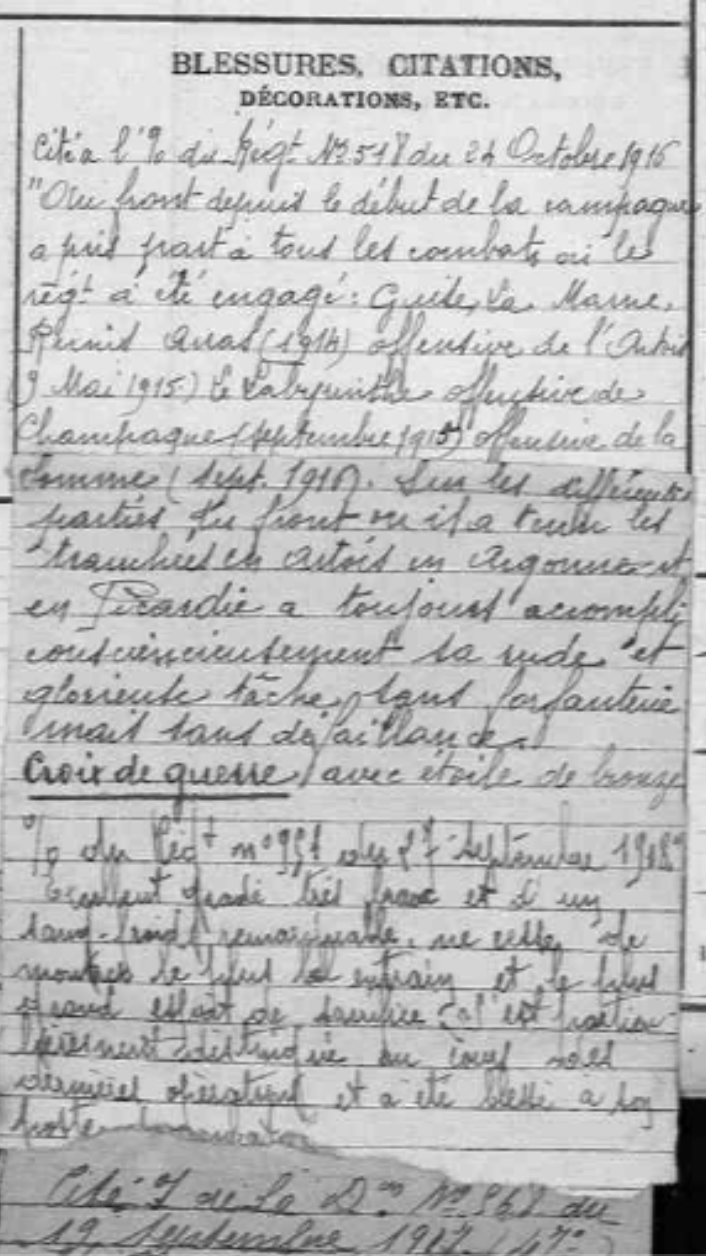 BLESSURES, CITATIONS,
DÉCORATIONS, ETC.
Cité à l'% du Régt No 518 du 24 Octobre 1916
"Au front depuis le début de la campagne
a pris part à tous les combats où le
régt a été engagé : Guise, La Marne,
Reims Arras (1914) offensive de l'Artois
9 Mai 1915) Le Labyrinthe offensive de
Champagne (septembre 1915) offensive de la
Somme (sept. 1916). Sur les différentes
parties du front où il a tenu les
tranchées en Artois en Argonne et
en Picardie a toujours accompli
consciencieusement sa rude et
glorieuse tâche, sans forfanterie
mais sans défaillance.
Croix de guerre avec étoile de bronze
% du Régt no 951 du 27 Septembre 1918
Excellent gradé très brave et d'un
sang-froid remarquable, ne cesse de
montrer le plus bel entrain et le plus
grand esprit de sacrifice s'est particu-
lièrement distingué au cours des
dernières opérations et a été blessé à son
poste
Cité de la Don No 562 du
19 Septembre 1917